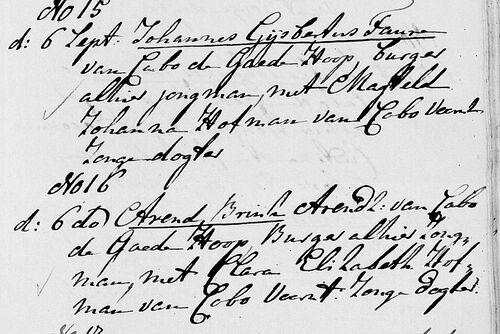 No 15
d: 6 Sept. Johannes Gijsbertus Faure
van Cabo de Goede Hoop, burger
alhier jongman, met Magteld
Johanna Hofman van Cabo voorn:t
Jonge dogter
No 16
d: 6 do) Arend Brink Arendz: van Cabo
de Goede Hoop, Burger alhier Jong,
man, met Clara Elizabeth Hof,
man van Cabo Voorn:t Jonge dogter.